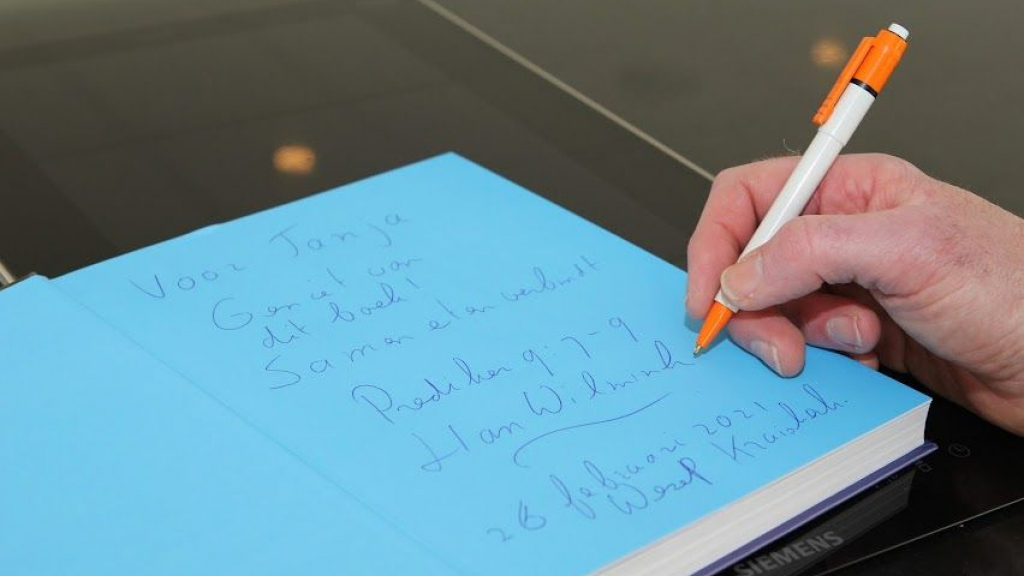 Voor Tanja
Geniet van
dit boek!
Samen eten verbindt
Prediker 9:7-9
Han Wilmink
26 februari 2021
Wezep
SIEMENS